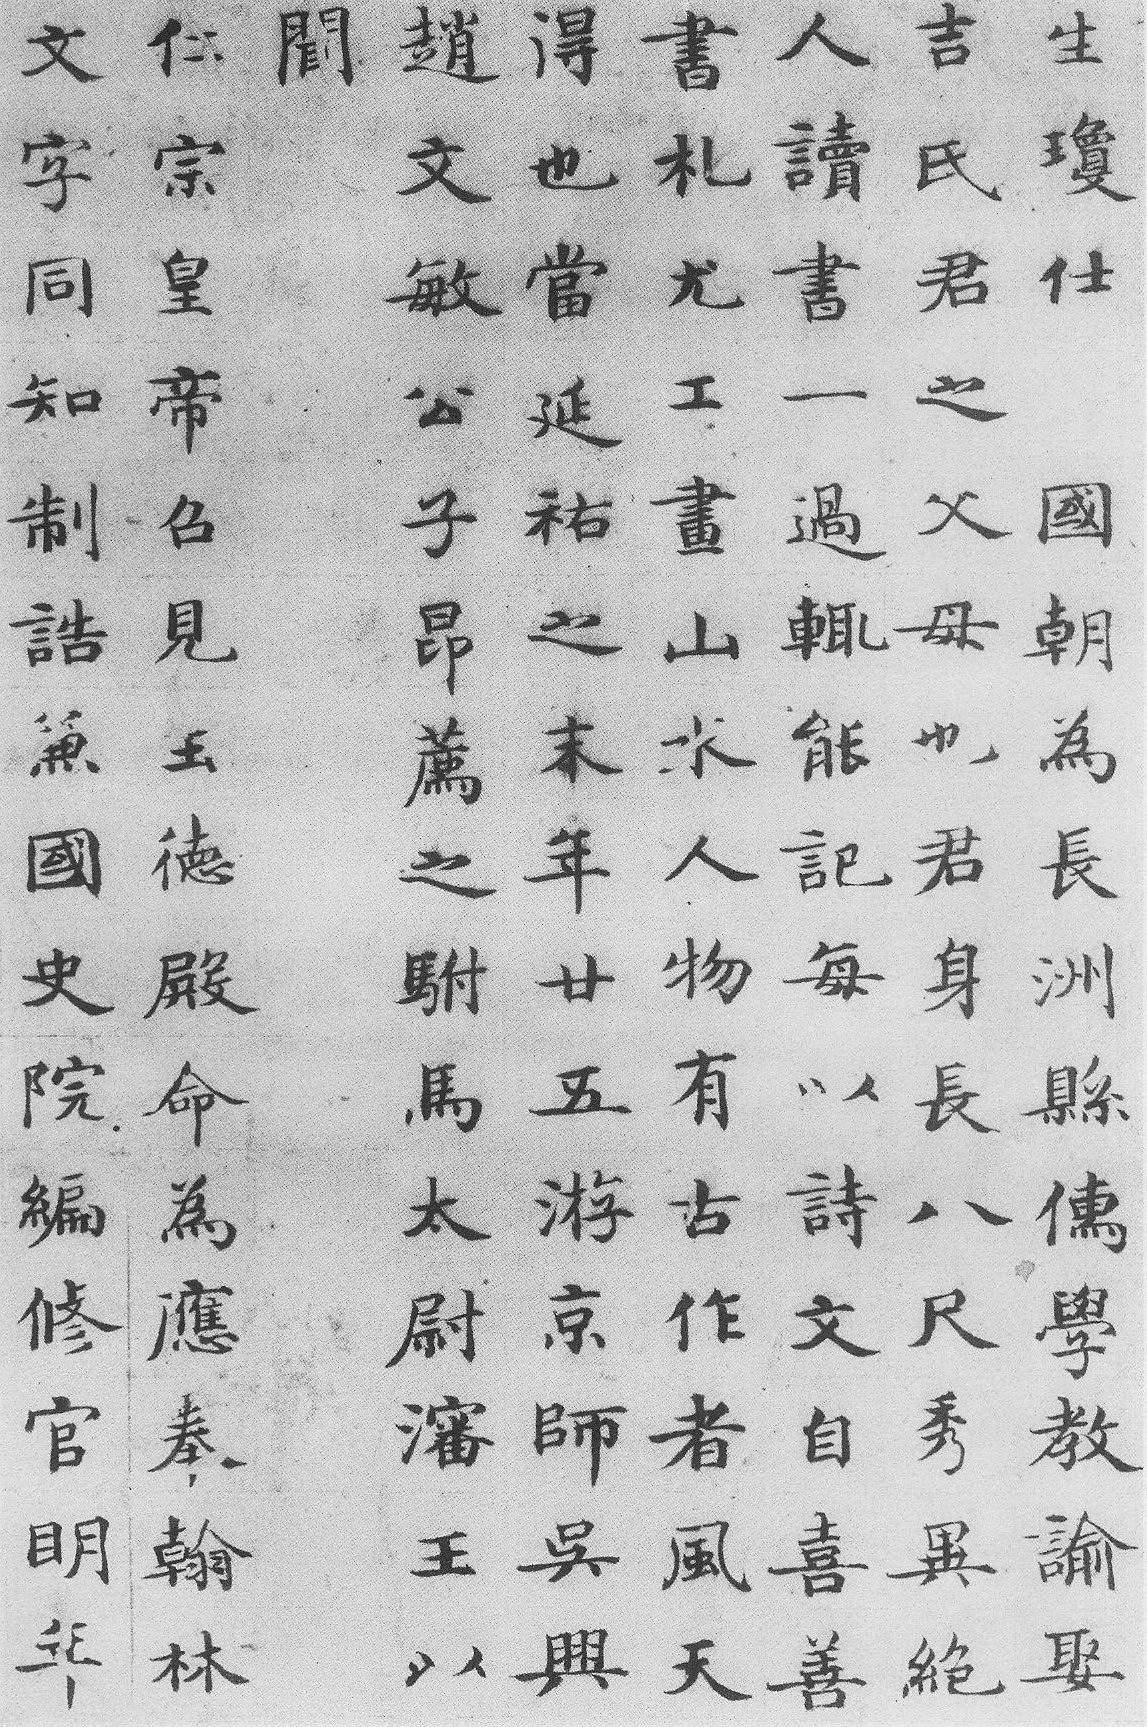 生瓊仕 國朝為長洲縣儒學教諭娶
吉氏君之父母也君身長八尺秀異絕
人讀書一過輒能記每以詩文自喜善
書札尤工畫山水人物有古作者風天
得也當延祐之末年廿五游京師吳興
趙文敏公子昂薦之駙馬太尉瀋王以
聞
仁宗皇帝召見玉德殿命為應奉翰林
文字同知制誥兼國史院編修官明年